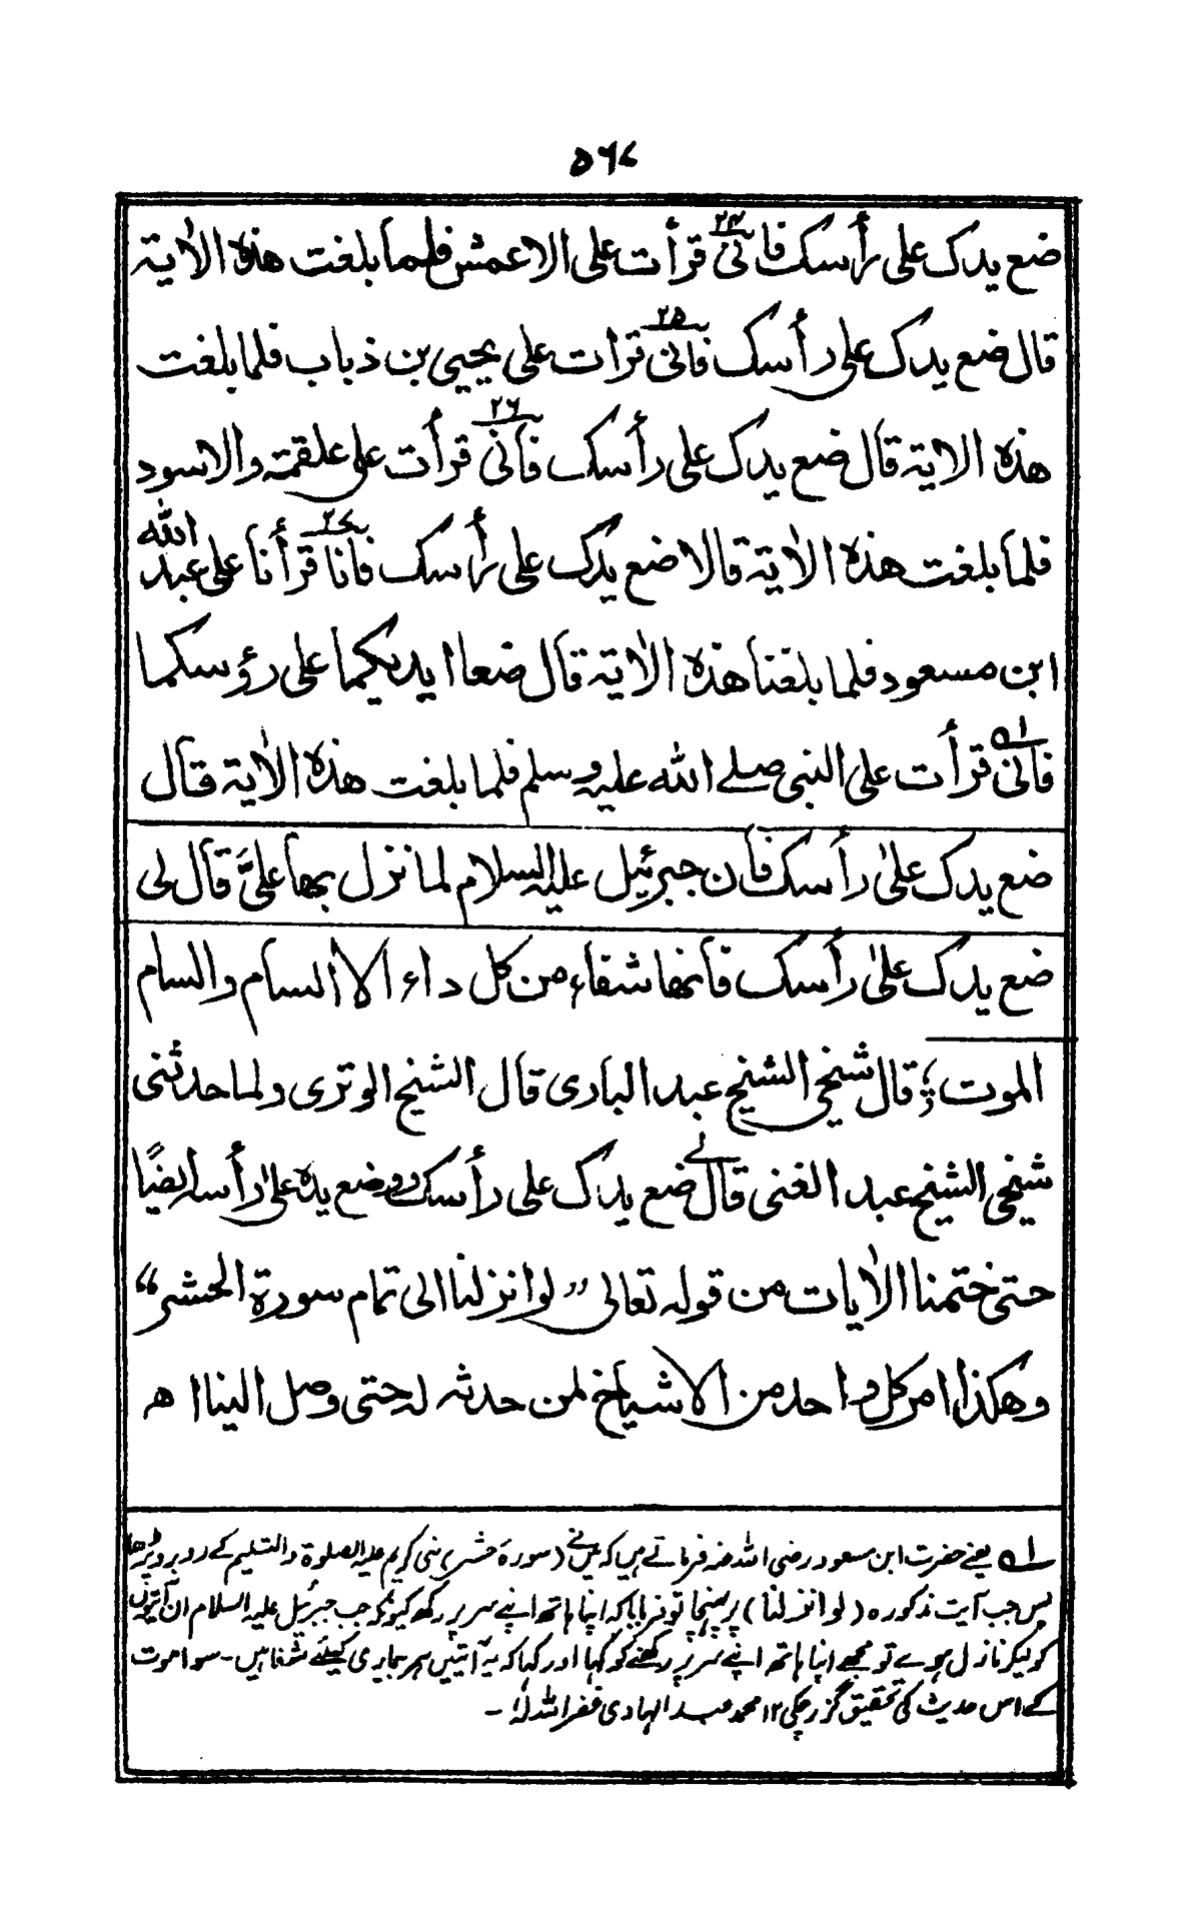 ۵۶۷
ضع یدک علی رأسک فانی۲۴ قرأت علی الاعمش فلما بلغت هذه الاٰیة
قال ضع یدک علی رأسک فانی۲۵ قرات علی یحیی بن ذباب فلما بلغت
هذه الایة قال ضع یدک علی رأسک فانی۲۶ قرأت علی علقمة والاسود
فلما بلغت هذه الاٰیة قالا ضع یدک علی رأسک فانا۲۷ قرأنا علی عبد الله
ابن مسعود فلما بلغنا هذه الاٰیة قال ضعا ایدیکما علی رؤسکما
فانی۱ه قرأت علی النبی صلے الله علیه وسلم فلما بلغت هذه الاٰیة قال
ضع یدک علیٰ رأسک فان جبرئیل علیه السلام لما نزل بها علیَّ قال لی
ضع یدک علیٰ رأسک فانها شفاء من کل داء الا السام والسام
الموت ؛ قال شیخی الشیخ عبد الباری قال الشیخ الوتری ولما حدثنی
شیخی الشیخ عبد الغنی قال لے ضع یدک علی رأسک ووضع یده علیٰ رأسه ایضًا
حتی ختمنا الاٰیات من قوله تعالی ” لو انزلنا الی تمام سورة الحشر “
وهکذا امر کل واحد من الاشیاخ لمن حدثه له حتی وصل الینا اه
۱ه یعنے حضرت ابن مسعود رضی اللہ عنہ فرماتے ہیں کہ میں نے (سورۂ حشر) نبی کریم علیہ الصلوة والتسلیم کے روبرو پڑھا
پس جب آیت مذکورہ (لو انزلنا) پر پہنچا تو فرمایا کہ اپنا ہاتھ اپنے سر پر رکھ کیونکہ جب جبرئیل علیہ السلام ان آیتوں
کو لیکر نازل ہوے تو مجھے اپنا ہاتھ اپنے سر پر رکھنے کو کہا اور کہا کہ یہ آیتیں ہر بیماری کیلئے شفا ہیں ۔ سوا موت
کے اس حدیث کی تحقیق گزر چکی ۱۲ محمد عبد الہادی غفر اللہ لہٗ ۔